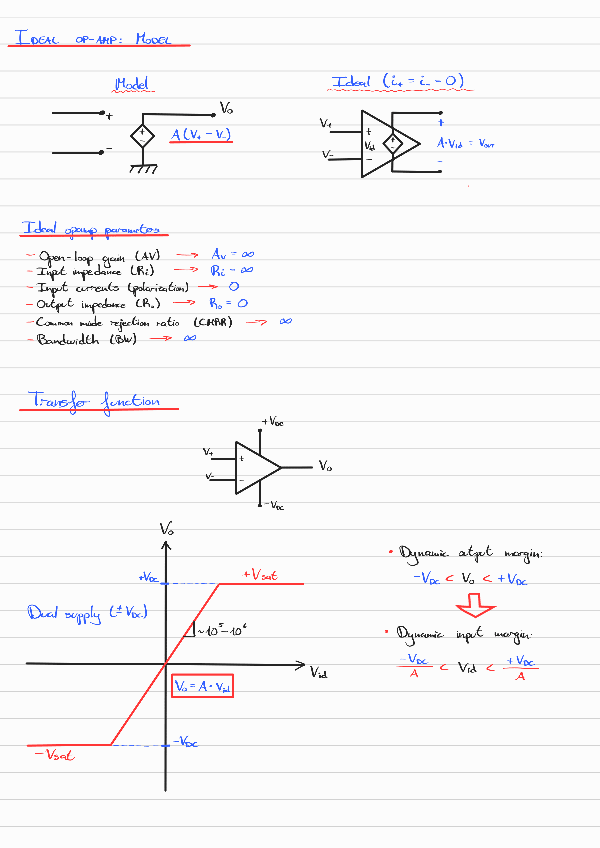 IDEAL OP-AMP: MODEL
Model
Ideal (i+ = i- = 0)
+
-
+
-
Vo
A(V+ - V-)
V+
V-
+
-
Vid
+
-
+
-
A·Vid = Vout
Ideal opamp parameters
- Open-loop gain (AV) → Av = ∞
- Input impedance (Ri) → Ri = ∞
- Input currents (polarization) → 0
- Output impedance (Ro) → Ro = 0
- Common mode rejection ratio (CMRR) → ∞
- Bandwidth (BW) → ∞
Transfer function
+VDC
V+
V-
+
-
Vo
-VDC
Vo
+VDC
+Vsat
Dual supply (±VDC)
~10^5-10^6
Vid
Vo = A·Vid
-VDC
-Vsat
• Dynamic otput margin:
-VDC < Vo < +VDC
• Dynamic input margin:
-VDC/A < Vid < +VDC/A